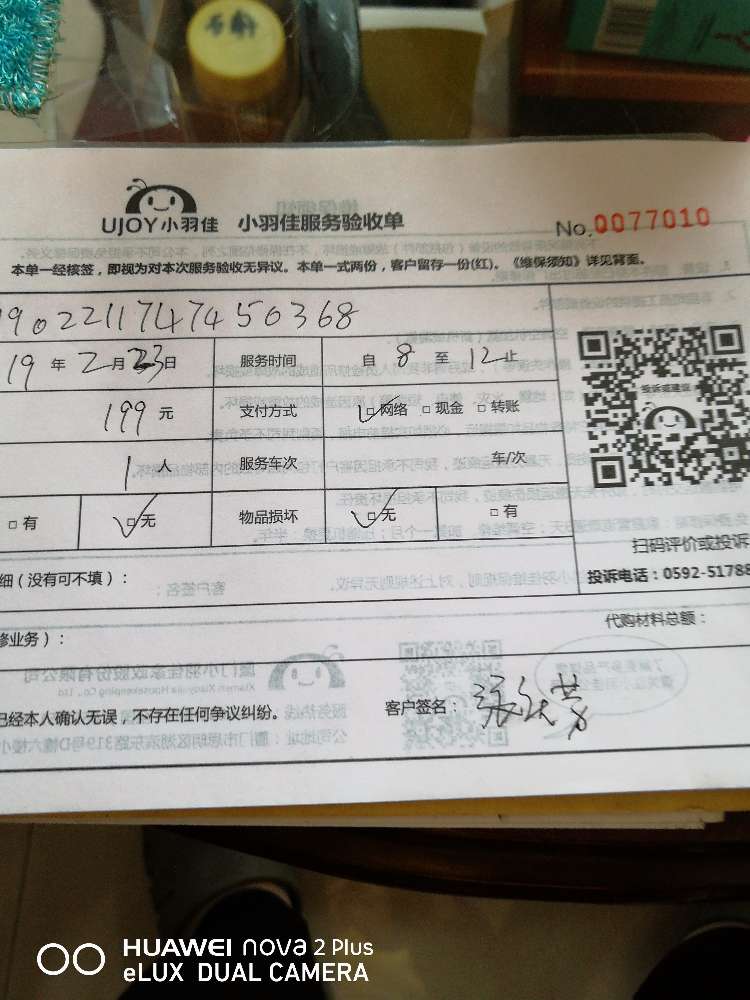 UJOY小羽佳 小羽佳服务验收单 No.0077010
本单一经核签，即视为对本次服务验收无异议。本单一式两份，客户留存一份(红)。《维保须知》详见背面。
190221174745 0368
19年2月23日 服务时间 自8至12止
投诉或建议
199元 支付方式 □网络 □现金 □转账
1人 服务车次 车/次
□有 □无 物品损坏 □无 □有
扫码评价或投诉
细（没有可不填）： 投诉电话：0592-51788
修业务）： 代购材料总额：
已经本人确认无误，不存在任何争议纠纷。 客户签名：
HUAWEI nova 2 Plus
eLUX DUAL CAMERA